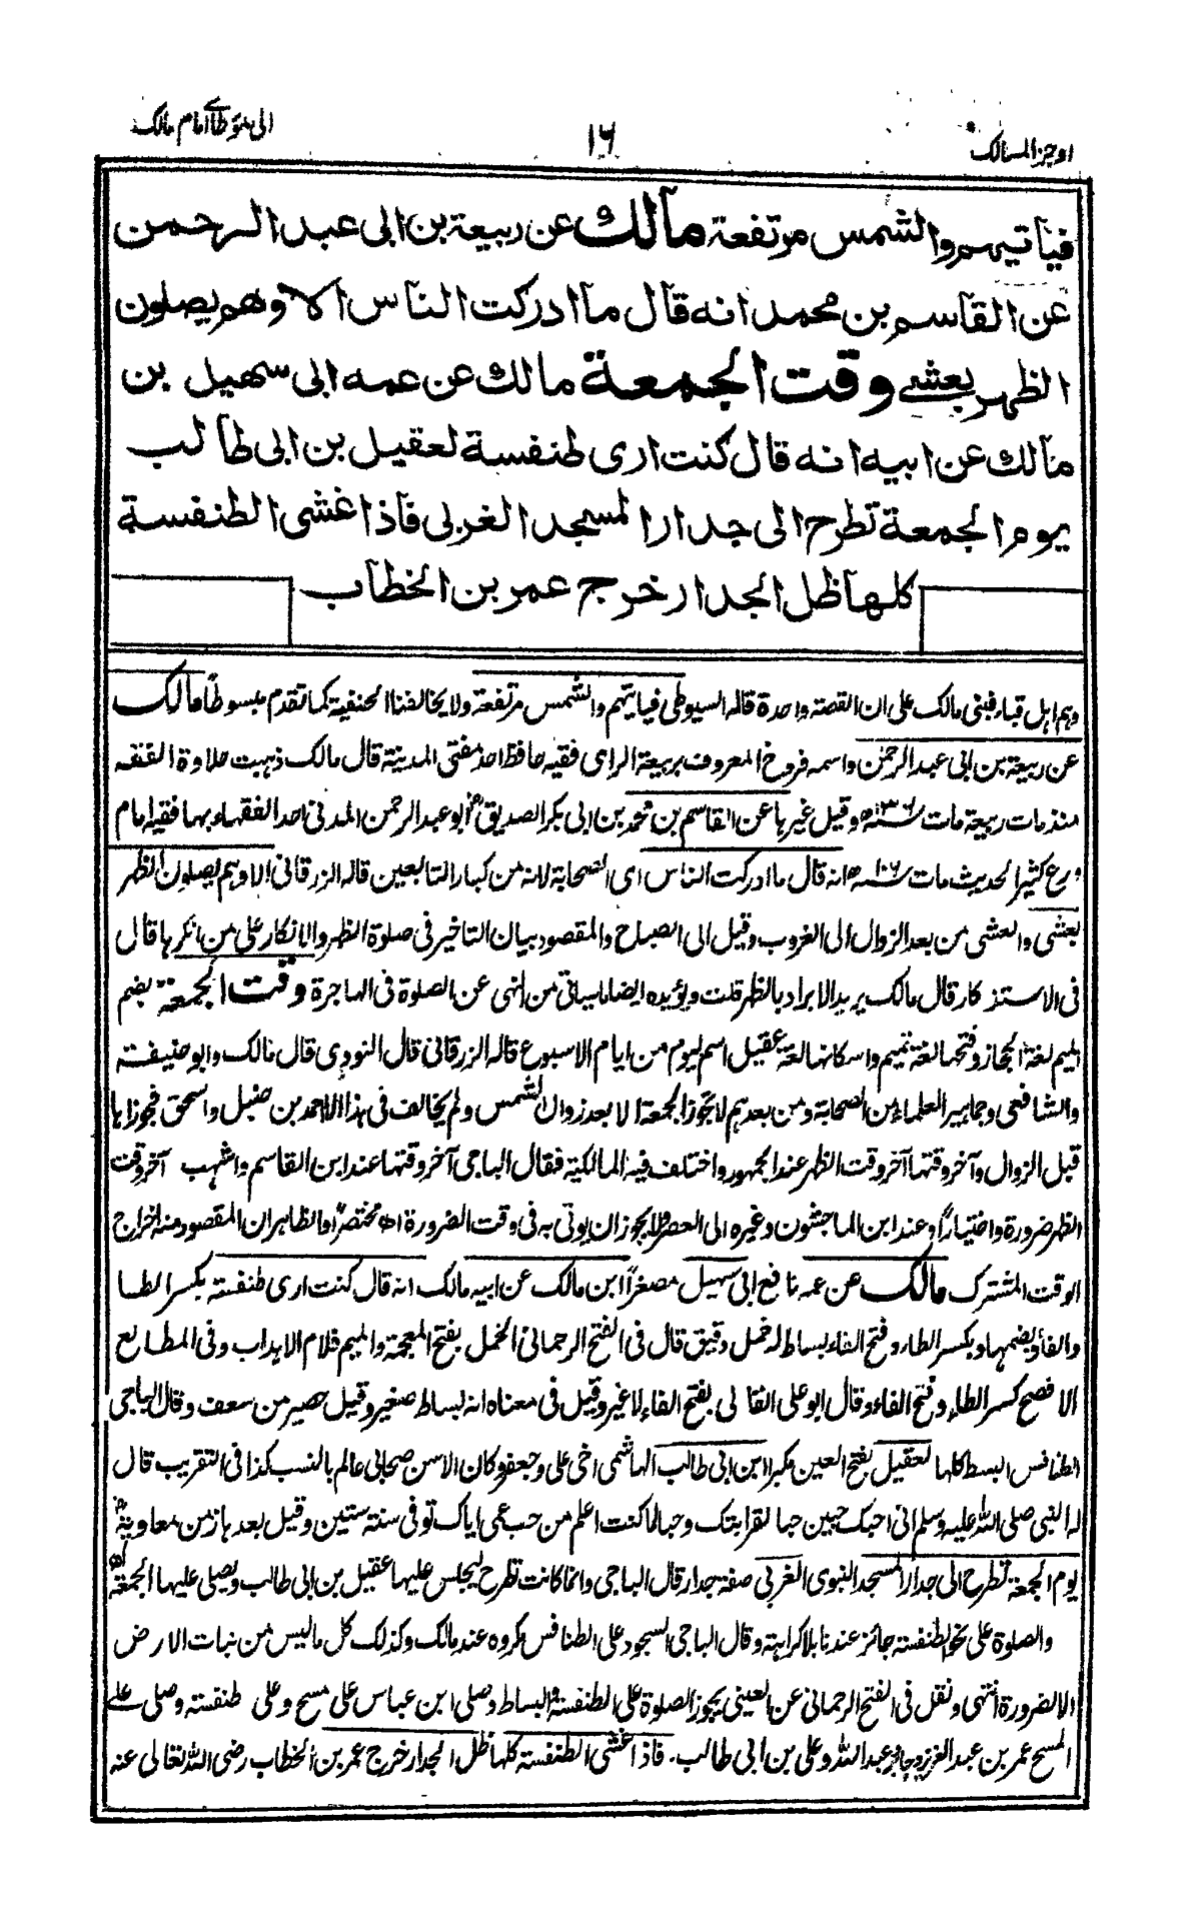 اوجز المسالك
١٦
الى مؤطا امام مالك
فيأتيهم والشمس مرتفعة مالك عن ربيعة بن ابى عبد الرحمن
عن القاسم بن محمد انه قال ما ادركت الناس الا وهم يصلون
الظهر بعشى وقت الجمعة مالك عن عمه ابى سهيل بن
مالك عن ابيه انه قال كنت ارى طنفسة لعقيل بن ابى طالب
يوم الجمعة تطرح الى جدار المسجد الغربى فاذا غشى الطنفسة
كلها ظل الجدار خرج عمر بن الخطاب
وهم اهل قباء فبنى مالك على ان القصة واحدة قاله السيوطى فيأتيهم والشمس مرتفعة ولا يخالفنا الحنفية كما تقدم مبسوطا مالك
عن ربيعة بن ابى عبد الرحمن واسمه فروخ المعروف بربيعة الراى فقيه حافظ احد مفتى المدينة قال مالك ذهبت حلاوة الفقه
منذ مات ربيعة مات سنة ١٣٦ه وقيل غيرها عن القاسم بن محمد بن ابى بكر الصديق ابو عبد الرحمن المدنى احد الفقهاء بها فقيه امام
ورع كثير الحديث مات سنة ١٠٦ه انه قال ما ادركت الناس اى الصحابة لانه من كبار التابعين قاله الزرقانى الا وهم يصلون الظهر
بعشى والعشى من بعد الزوال الى الغروب وقيل الى الصباح والمقصود بيان التاخير فى صلوة الظهر والانكار على من انكرها قال
فى الاستذكار قال مالك يريد الابراد بالظهر قلت ويؤيده ايضا ما سياتى من النهى عن الصلوة فى الهاجرة وقت الجمعة بضم
الميم لغة الحجاز وفتحها لغة تميم واسكانها لغة عقيل اسم ليوم من ايام الاسبوع قاله الزرقانى قال النووى قال مالك وابو حنيفة
والشافعى وجماهير العلماء من الصحابة ومن بعدهم لا تجوز الجمعة الا بعد زوال الشمس ولم يخالف فى هذا الا احمد بن حنبل واسحق فجوزاها
قبل الزوال وآخر وقتها آخر وقت الظهر عند الجمهور واختلف فيه المالكية فقال الباجى آخر وقتها عند ابن القاسم واشهب آخر وقت
الظهر ضرورة واختيارا وعند ابن الماجشون وغيره الى العصر لا يجوز ان يوتى به فى وقت الضرورة اه مختصرا والظاهر ان المقصود منه اخراج
الوقت المشترك مالك عن عمه نافع ابى سهيل مصغرا ابن مالك عن ابيه مالك انه قال كنت ارى طنفسة بكسر الطا
والفا وبضمهما وبكسر الطاء وفتح الفاء بساط له خمل دقيق قال فى الفتح الرحمانى الخمل بفتح المعجمة والميم فلام الاهداب وفى المطالع
الافصح كسر الطاء وفتح الفاء وقال ابو على القالى بفتح الفاء لا غير وقيل فى معناه انه بساط صغير وقيل حصير من سعف وقال الباجى
الطنافس البسط كلها لعقيل بفتح العين مكبرا ابن ابى طالب الهاشمى اخى على وجعفر وكان الاسن صحابى عالم بالنسب كذا فى التقريب قال
له النبى صلى الله عليه وسلم انى احبك حبين حبا لقرابتك وحبا لما كنت اعلم من حب عمى اياك توفى سنة ستين وقيل بعدها زمن معاوية
يوم الجمعة تطرح الى جدار المسجد النبوى الغربى صفة جدار قال الباجى وانما كانت تطرح ليجلس عليها عقيل بن ابى طالب ويصلى عليها الجمعة اه
والصلوة على نحو الطنفسة جائز عندنا بلا كراهة وقال الباجى السجود على الطنافس مكروه عند مالك وكذلك كل ما ليس من نبات الارض
الا لضرورة انتهى ونقل فى الفتح الرحمانى عن العينى يجوز الصلوة على الطنفسة والبساط وصلى ابن عباس على مسح وعلى طنفسة وصلى على
المسح عمر بن عبد العزيز وجابر بن عبد الله وعلى بن ابى طالب. فاذا غشى الطنفسة كلها ظل الجدار خرج عمر بن الخطاب رضى الله تعالى عنه